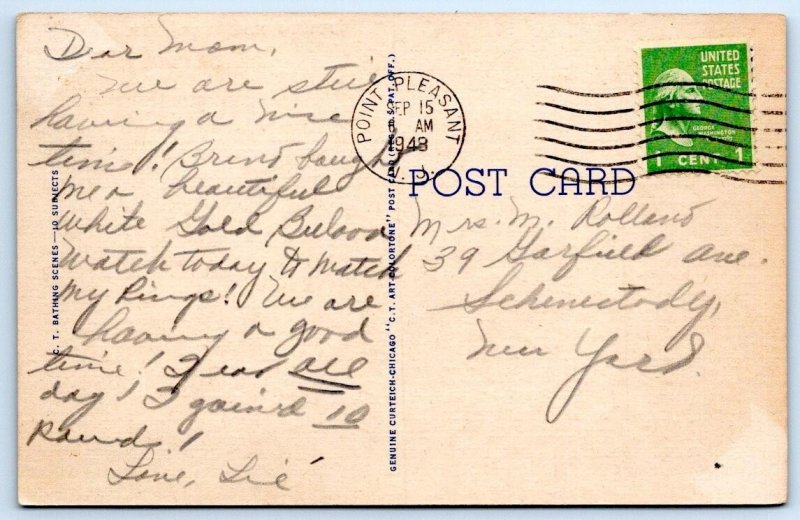 Dear Mom,
We are still
having a nice
time! Brino bought
me a beautiful
white Gold Bulova
watch today to match
my rings! We are
having a good
time! I eat all
day! I gained 10
pounds!
Love,
C. T. BATHING SCENES—10 SUBJECTS
GENUINE CURTEICH-CHICAGO "C.T. ART-COLORTONE" POST CARD (REG. U.S. PAT. OFF.)
POINT PLEASANT
SEP 15
AM
1948
N. J.
UNITED
STATES
POSTAGE
GEORGE
WASHINGTON
1 CENT 1
POST CARD
Mrs. M. Rolland
39 Garfield Ave.
Schenectady,
New York.